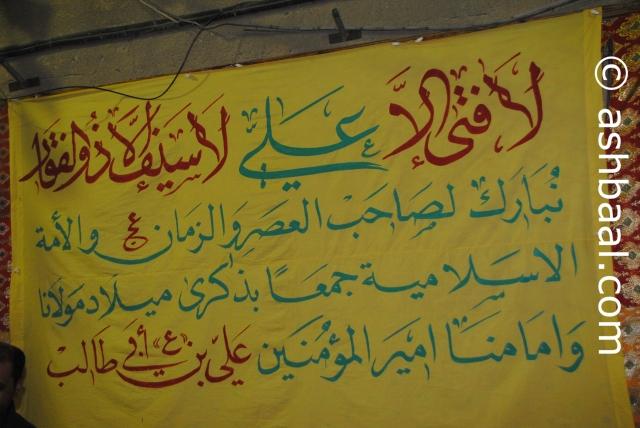 لا فتى إلا علي لا سيف إلا ذو لفقار
نبارك لصاحب العصر والزمان عج والأمة
الاسلامية جمعاً بذكرى ميلاد مولانا
وامامنا امير المؤمنين علي بن «ع» أبي طالب
© ashbaal.com